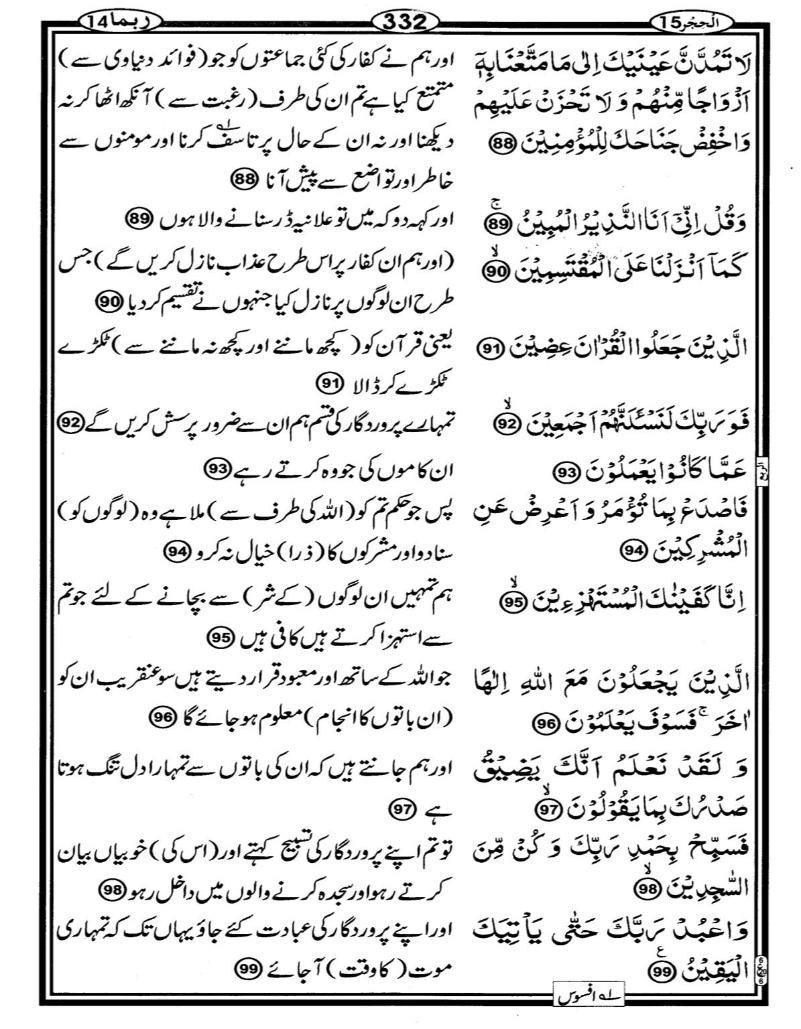 الحجر 15
332
ربما 14
لَا تَمُدَّنَّ عَيْنَيْكَ اِلٰى مَا مَتَّعْنَا بِهٖٓ
اَزْوَاجًا مِّنْهُمْ وَ لَا تَحْزَنْ عَلَيْهِمْ
وَاخْفِضْ جَنَاحَكَ لِلْمُؤْمِنِيْنَ 88
اور ہم نے کفار کی کئی جماعتوں کو جو (فوائد دنیاوی سے)
متمتع کیا ہے تم ان کی طرف (رغبت سے) آنکھ اٹھا کر نہ
دیکھنا اور نہ ان کے حال پر تاسف۱؎ کرنا اور مومنوں سے
خاطر اور تواضع سے پیش آنا 88
وَقُلْ اِنِّيْٓ اَنَا النَّذِيْرُ الْمُبِيْنُ ۚ 89
اور کہہ دو کہ میں تو علانیہ ڈر سنانے والا ہوں 89
كَمَآ اَنْزَلْنَا عَلَى الْمُقْتَسِمِيْنَ ۙ 90
(اور ہم ان کفار پر اس طرح عذاب نازل کریں گے) جس
طرح ان لوگوں پر نازل کیا جنہوں نے تقسیم کر دیا 90
الَّذِيْنَ جَعَلُوا الْقُرْاٰنَ عِضِيْنَ 91
یعنی قرآن کو (کچھ ماننے اور کچھ نہ ماننے سے) ٹکڑے
ٹکڑے کر ڈالا 91
فَوَ رَبِّكَ لَنَسْـَٔلَنَّهُمْ اَجْمَعِيْنَ ۙ 92
تمہارے پروردگار کی قسم ہم ان سے ضرور پرسش کریں گے 92
عَمَّا كَانُوْا يَعْمَلُوْنَ 93
ان کاموں کی جو وہ کرتے رہے 93
الربع
فَاصْدَعْ بِمَا تُؤْمَرُ وَ اَعْرِضْ عَنِ
الْمُشْرِكِيْنَ 94
پس جو حکم تم کو (اللہ کی طرف سے) ملا ہے وہ (لوگوں کو)
سنا دو اور مشرکوں کا (ذرا) خیال نہ کرو 94
اِنَّا كَفَيْنٰكَ الْمُسْتَهْزِءِيْنَ ۙ 95
ہم تمہیں ان لوگوں (کے شر) سے بچانے کے لئے جو تم
سے استہزا کرتے ہیں کافی ہیں 95
الَّذِيْنَ يَجْعَلُوْنَ مَعَ اللّٰهِ اِلٰهًا
اٰخَرَ ۚ فَسَوْفَ يَعْلَمُوْنَ 96
جو اللہ کے ساتھ اور معبود قرار دیتے ہیں سو عنقریب ان کو
(ان باتوں کا انجام) معلوم ہو جائے گا 96
وَ لَقَدْ نَعْلَمُ اَنَّكَ يَضِيْقُ
صَدْرُكَ بِمَا يَقُوْلُوْنَ ۙ 97
اور ہم جانتے ہیں کہ ان کی باتوں سے تمہارا دل تنگ ہوتا
ہے 97
فَسَبِّحْ بِحَمْدِ رَبِّكَ وَ كُنْ مِّنَ
السّٰجِدِيْنَ ۙ 98
تو تم اپنے پروردگار کی تسبیح کہتے اور (اس کی) خوبیاں بیان
کرتے رہو اور سجدہ کرنے والوں میں داخل رہو 98
وَاعْبُدْ رَبَّكَ حَتّٰى يَاْتِيَكَ
الْيَقِيْنُ ع 99
اور اپنے پروردگار کی عبادت کئے جاؤ یہاں تک کہ تمہاری
موت (کا وقت) آ جائے 99
۱؎ افسوس